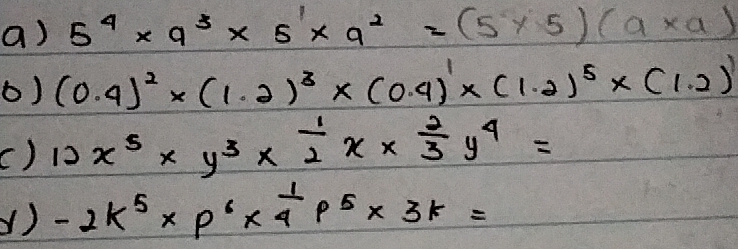 a) 5⁴ × 9³ × 5¹ × 9² = (5 × 5) (9 × 9)
b) (0.4)² × (1.2)³ × (0.4)¹ × (1.2)⁵ × (1.2)¹
c) 12x⁵ × y³ × 1/2 x × 2/3 y⁴ =
d) -2k⁵ × p⁶ × 1/4 p⁵ × 3k =